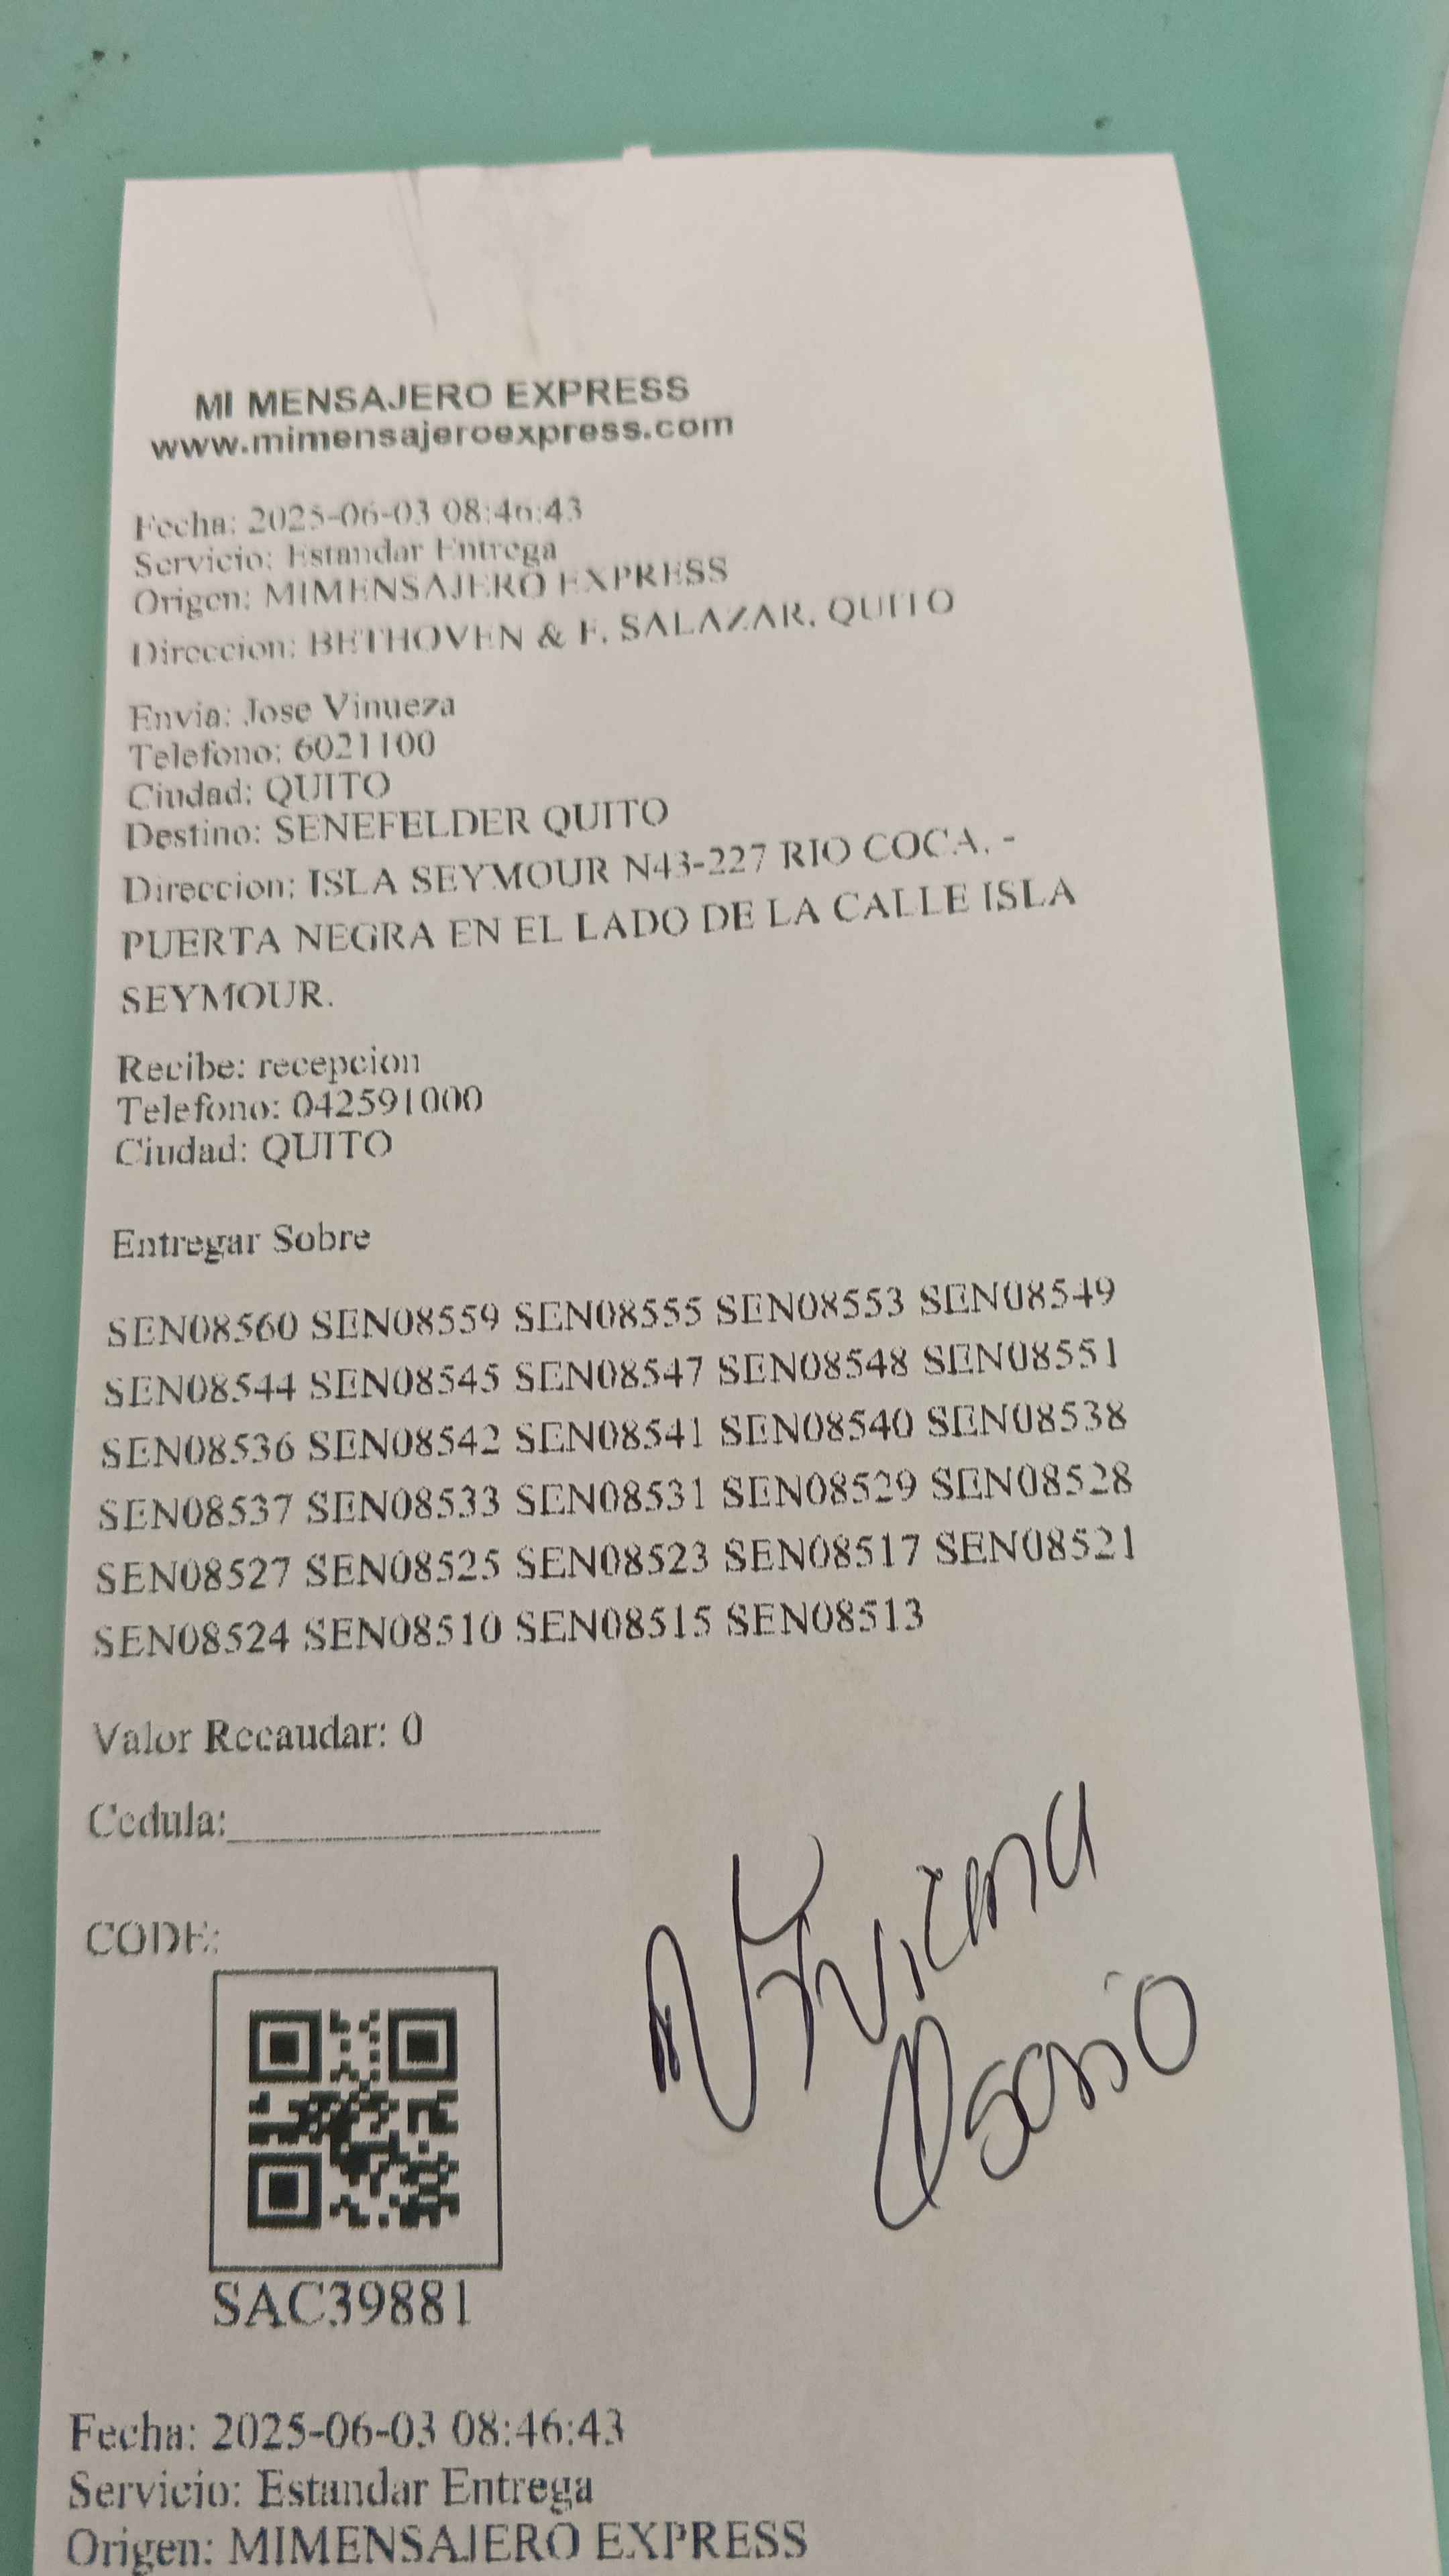 MI MENSAJERO EXPRESS
www.mimensajeroexpress.com
Fecha: 2025-06-03 08:46:43
Servicio: Estandar Entrega
Origen: MIMENSAJERO EXPRESS
Direccion: BETHOVEN & F. SALAZAR, QUITO
Envia: Jose Vinueza
Telefono: 6021100
Ciudad: QUITO
Destino: SENEFELDER QUITO
Direccion: ISLA SEYMOUR N43-227 RIO COCA. -
PUERTA NEGRA EN EL LADO DE LA CALLE ISLA
SEYMOUR.
Recibe: recepcion
Telefono: 042591000
Ciudad: QUITO
Entregar Sobre
SEN08560 SEN08559 SEN08555 SEN08553 SEN08549
SEN08544 SEN08545 SEN08547 SEN08548 SEN08551
SEN08536 SEN08542 SEN08541 SEN08540 SEN08538
SEN08537 SEN08533 SEN08531 SEN08529 SEN08528
SEN08527 SEN08525 SEN08523 SEN08517 SEN08521
SEN08524 SEN08510 SEN08515 SEN08513
Valor Recaudar: 0
Cedula:
CODE:
SAC39881
Fecha: 2025-06-03 08:46:43
Servicio: Estandar Entrega
Origen: MIMENSAJERO EXPRESS